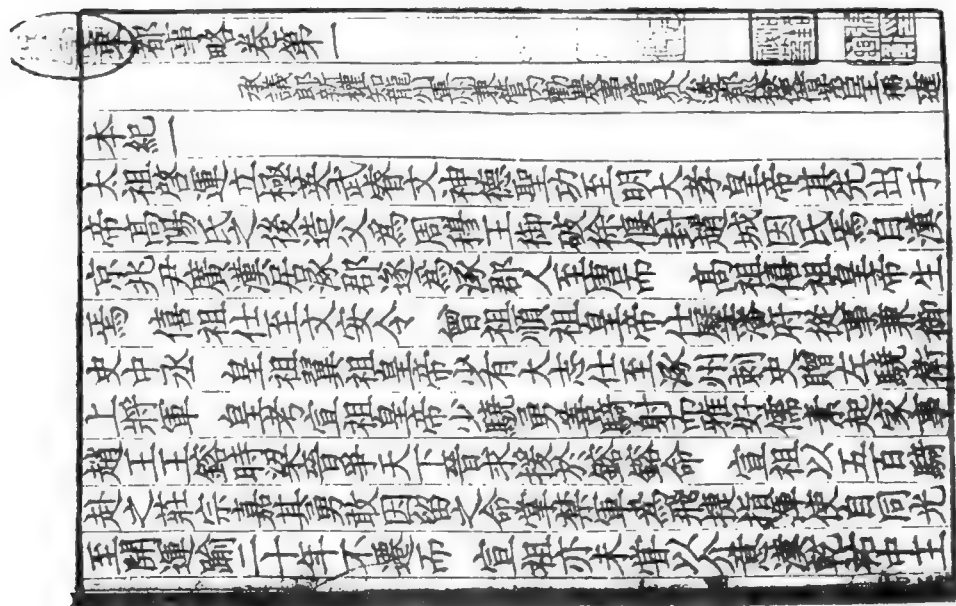 東都事略卷第一
承議郎新權知龍州軍州兼管內勸農事管界沿邊都巡檢使借紫臣王稱進
本紀一
太祖啓運立極英武睿文神德聖功至明大孝皇帝其先出于
帝高陽氏之後造父為周穆王御破徐偃封趙城因氏焉自漢
京兆尹廣漢居涿郡遂為涿郡人至唐而 高祖僖祖皇帝生
焉 僖祖仕至文安令 曾祖順祖皇帝仕歷藩府從事兼御
史中丞 皇祖翼祖皇帝少有大志仕至涿州刺史贈左驍衛
上將軍 皇考宣祖皇帝少驍勇善騎射而雅好儒素起家事
趙王王鎔時梁晉爭天下晉求援於鎔鎔命 宣祖以五百騎
赴之莊宗嘉其勇敢因留之命掌禁軍為飛捷指揮使自同光
至開運踰二十年不遷而 宣祖亦未嘗以介意漢乾祐中王